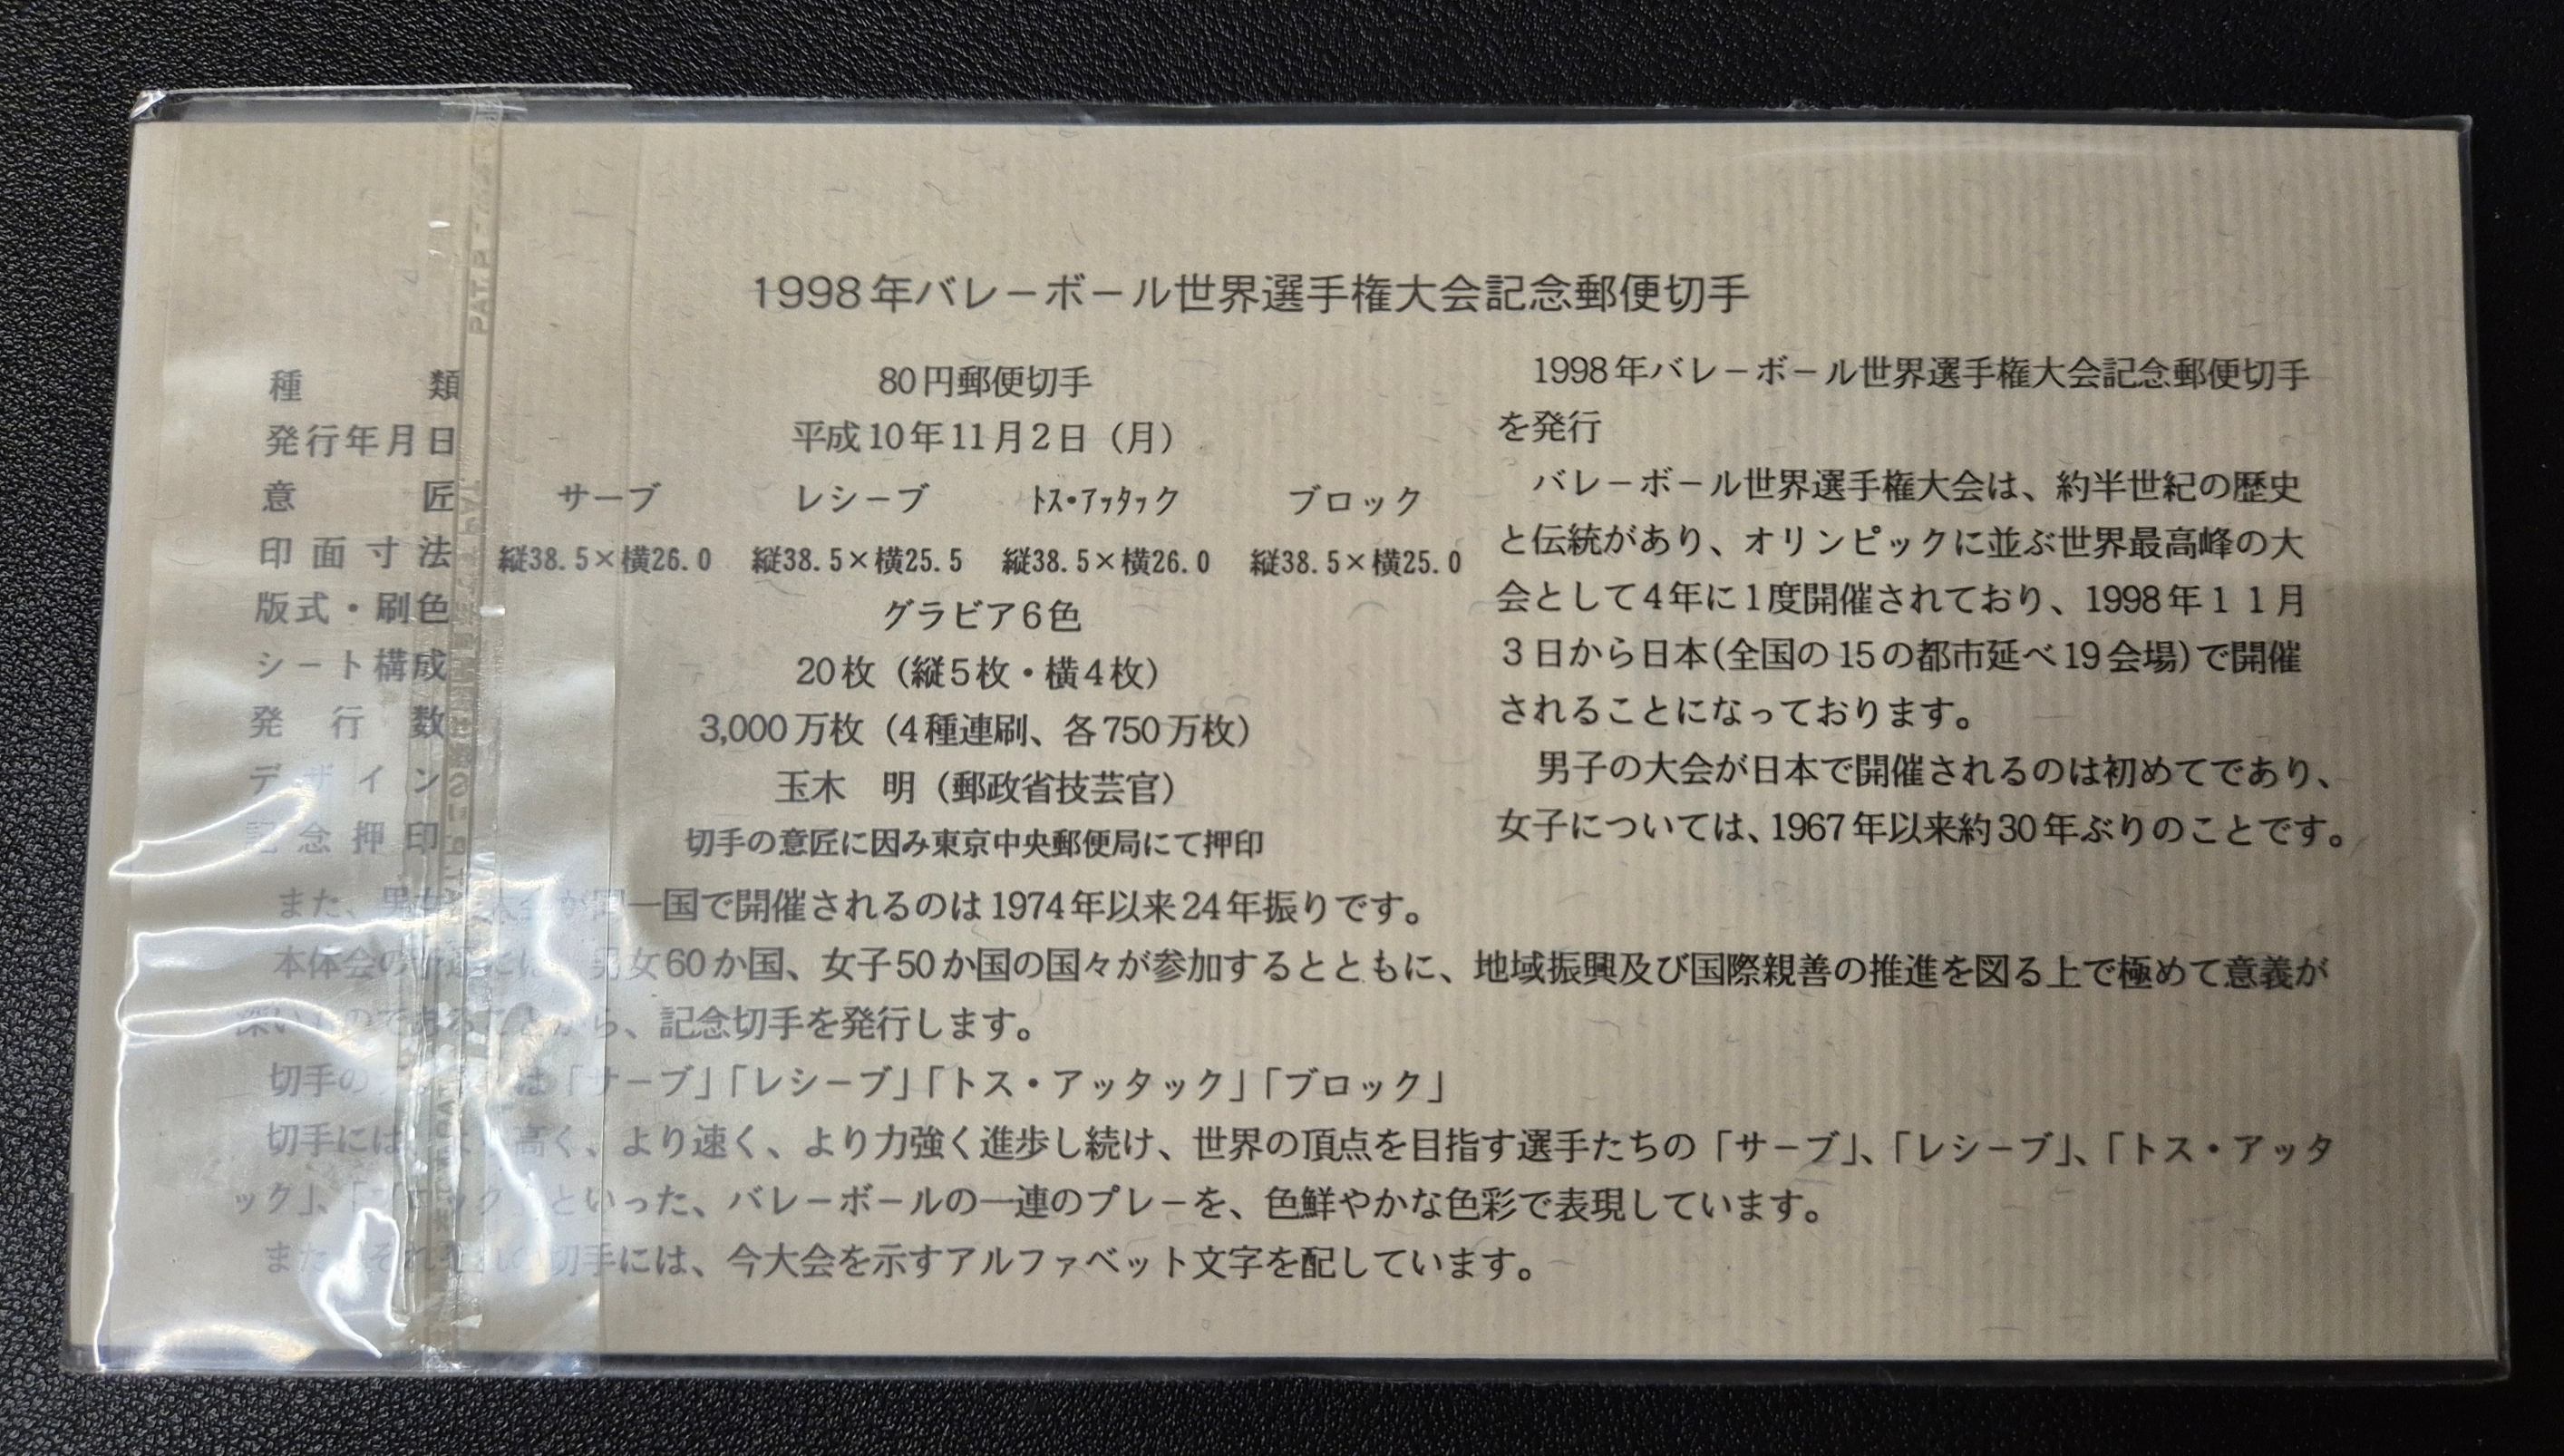 1998年バレーボール世界選手権大会記念郵便切手
種類 80円郵便切手
発行年月日 平成10年11月2日（月）
意匠 サーブ レシーブ トス・アッタック ブロック
印面寸法 縦38.5×横26.0 縦38.5×横25.5 縦38.5×横26.0 縦38.5×横25.0
版式・刷色 グラビア6色
シート構成 20枚（縦5枚・横4枚）
発行数 3,000万枚（4種連刷、各750万枚）
デザイン 玉木 明（郵政省技芸官）
記念押印 切手の意匠に因み東京中央郵便局にて押印
1998年バレーボール世界選手権大会記念郵便切手
を発行
バレーボール世界選手権大会は、約半世紀の歴史
と伝統があり、オリンピックに並ぶ世界最高峰の大
会として4年に1度開催されており、1998年11月
3日から日本(全国の15の都市延べ19会場)で開催
されることになっております。
男子の大会が日本で開催されるのは初めてであり、
女子については、1967年以来約30年ぶりのことです。
また、男女 大会が同一国で開催されるのは1974年以来24年振りです。
本体会の 男女60か国、女子50か国の国々が参加するとともに、地域振興及び国際親善の推進を図る上で極めて意義が
深いものであることから、記念切手を発行します。
切手の は「サーブ」「レシーブ」「トス・アッタック」「ブロック」
切手には、より高く、より速く、より力強く進歩し続け、世界の頂点を目指す選手たちの「サーブ」、「レシーブ」、「トス・アッタ
ック」、「ブロック」といった、バレーボールの一連のプレーを、色鮮やかな色彩で表現しています。
また、それぞれの切手には、今大会を示すアルファベット文字を配しています。
PAT.P